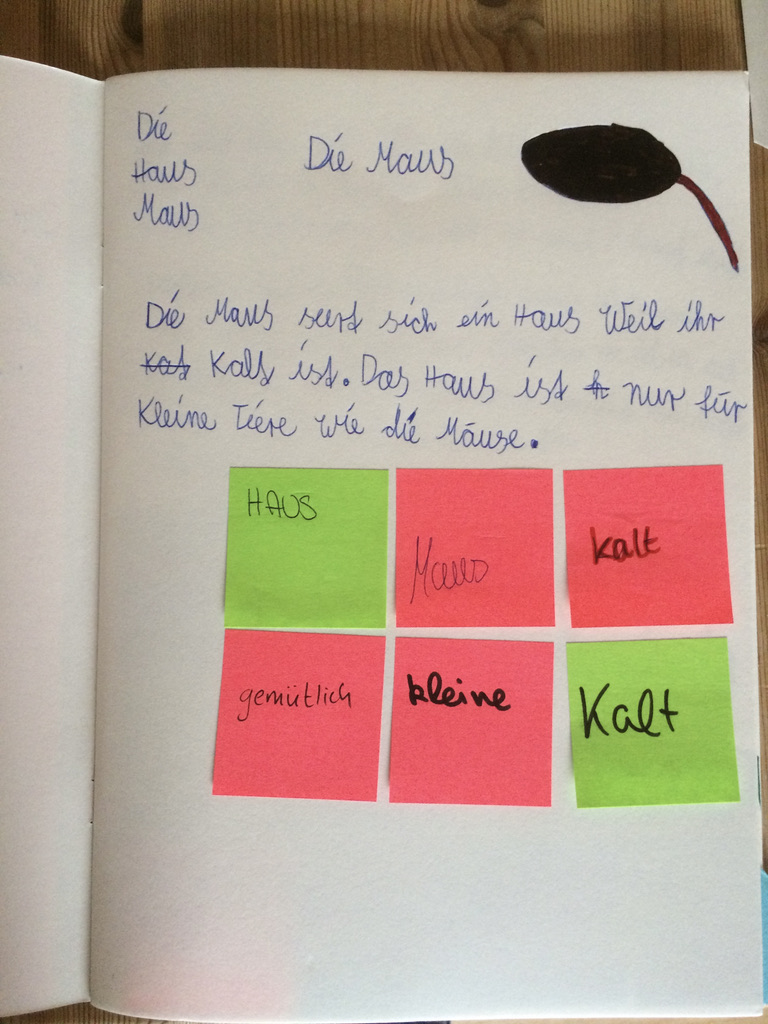 Die
Haus
Maus
Die Maus
Die Maus suct sich ein Haus Weil ihr
Kalt ist. Das Haus ist nur für
Kleine Tiere wie die Mäuse.
HAUS
Maus
kalt
gemütlich
kleine
Kalt